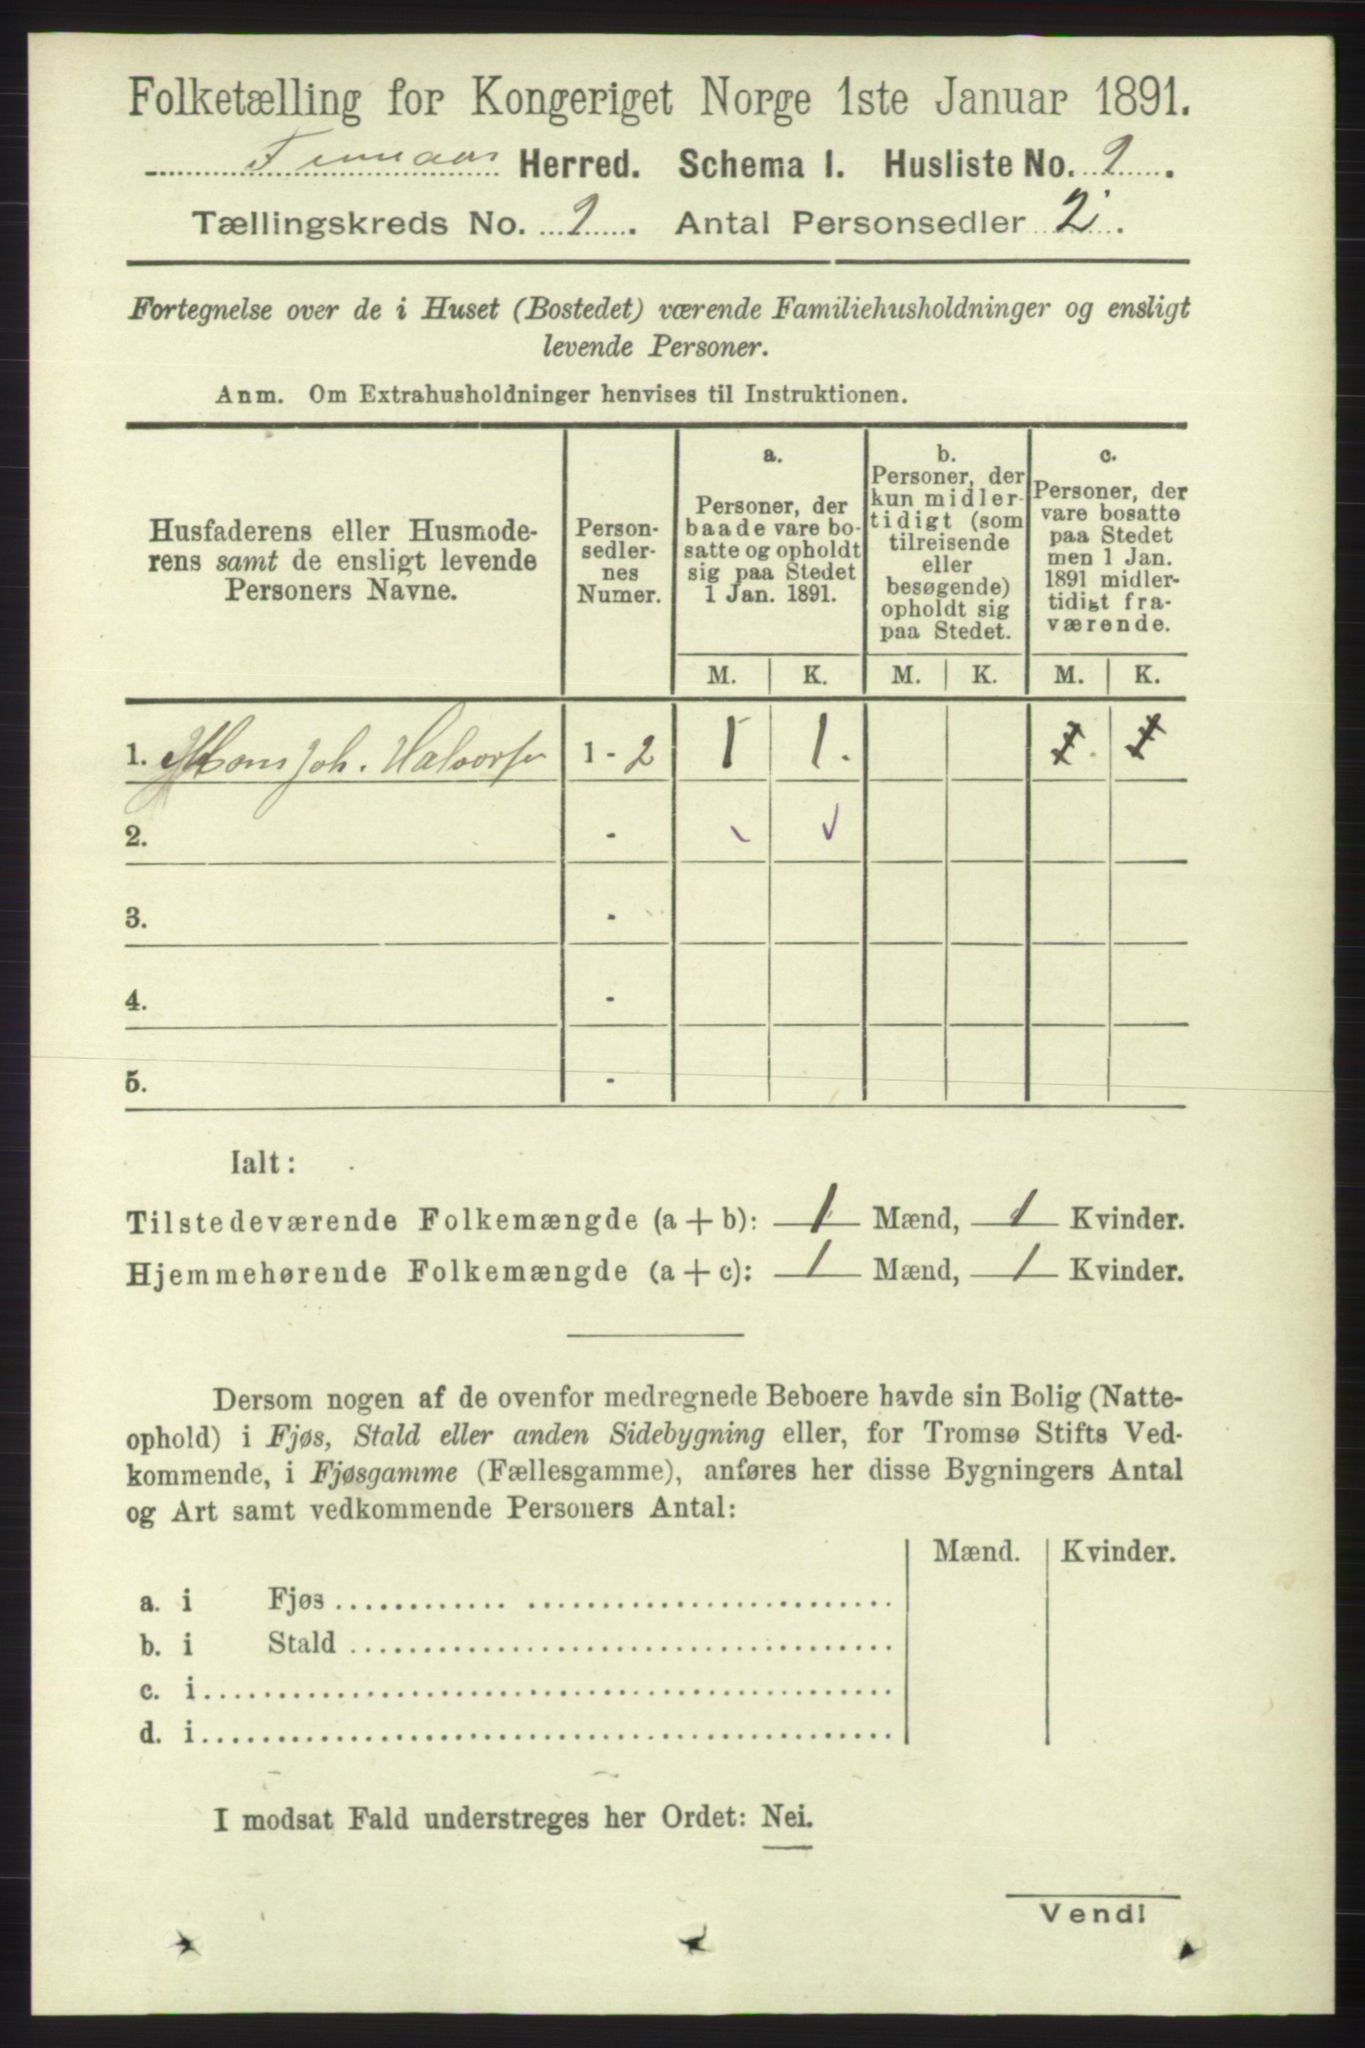 Folketælling for Kongeriget Norge 1ste Januar 1891.
Herred. Schema 1. Husliste No. 2.
Tællingskreds No. 2. Antal Personsedler 2.
Fortegnelse over de i Huset (Bostedet) værende Familiehusholdninger og ensligt
levende Personer.
Anm. Om Extrahusholdninger henvises til Instruktionen.
Husfaderens eller Husmode-
rens samt de ensligt levende
Personers Navne.
Person-
sedler-
nes
Numer.
a.
Personer, der
baade vare bo-
satte og opholdt
sig paa Stedet
1 Jan. 1891.
b.
Personer, der
kun midler-
tidigt (som
tilreisende
eller
besøgende)
opholdt sig
paa Stedet.
c.
Personer, der
vare bosatte
paa Stedet
men 1 Jan.
1891 midler-
tidigt fra-
værende.
M. K. M. K. M. K.
1. Hans Joh. Halvorsen 1 - 2 1 1. 1. 1
2. - ✓
3. -
4. -
5. -
Ialt:
Tilstedeværende Folkemængde (a + b): 1 Mænd, 1 Kvinder.
Hjemmehørende Folkemængde (a + c): 1 Mænd, 1 Kvinder.
Dersom nogen af de ovenfor medregnede Beboere havde sin Bolig (Natte-
ophold) i Fjøs, Stald eller anden Sidebygning eller, for Tromsø Stifts Ved-
kommende, i Fjøsgamme (Fællesgamme), anføres her disse Bygningers Antal
og Art samt vedkommende Personers Antal:
Mænd. Kvinder.
a. i Fjøs
b. i Stald
c. i
d. i
I modsat Fald understreges her Ordet: Nei.
Vend!